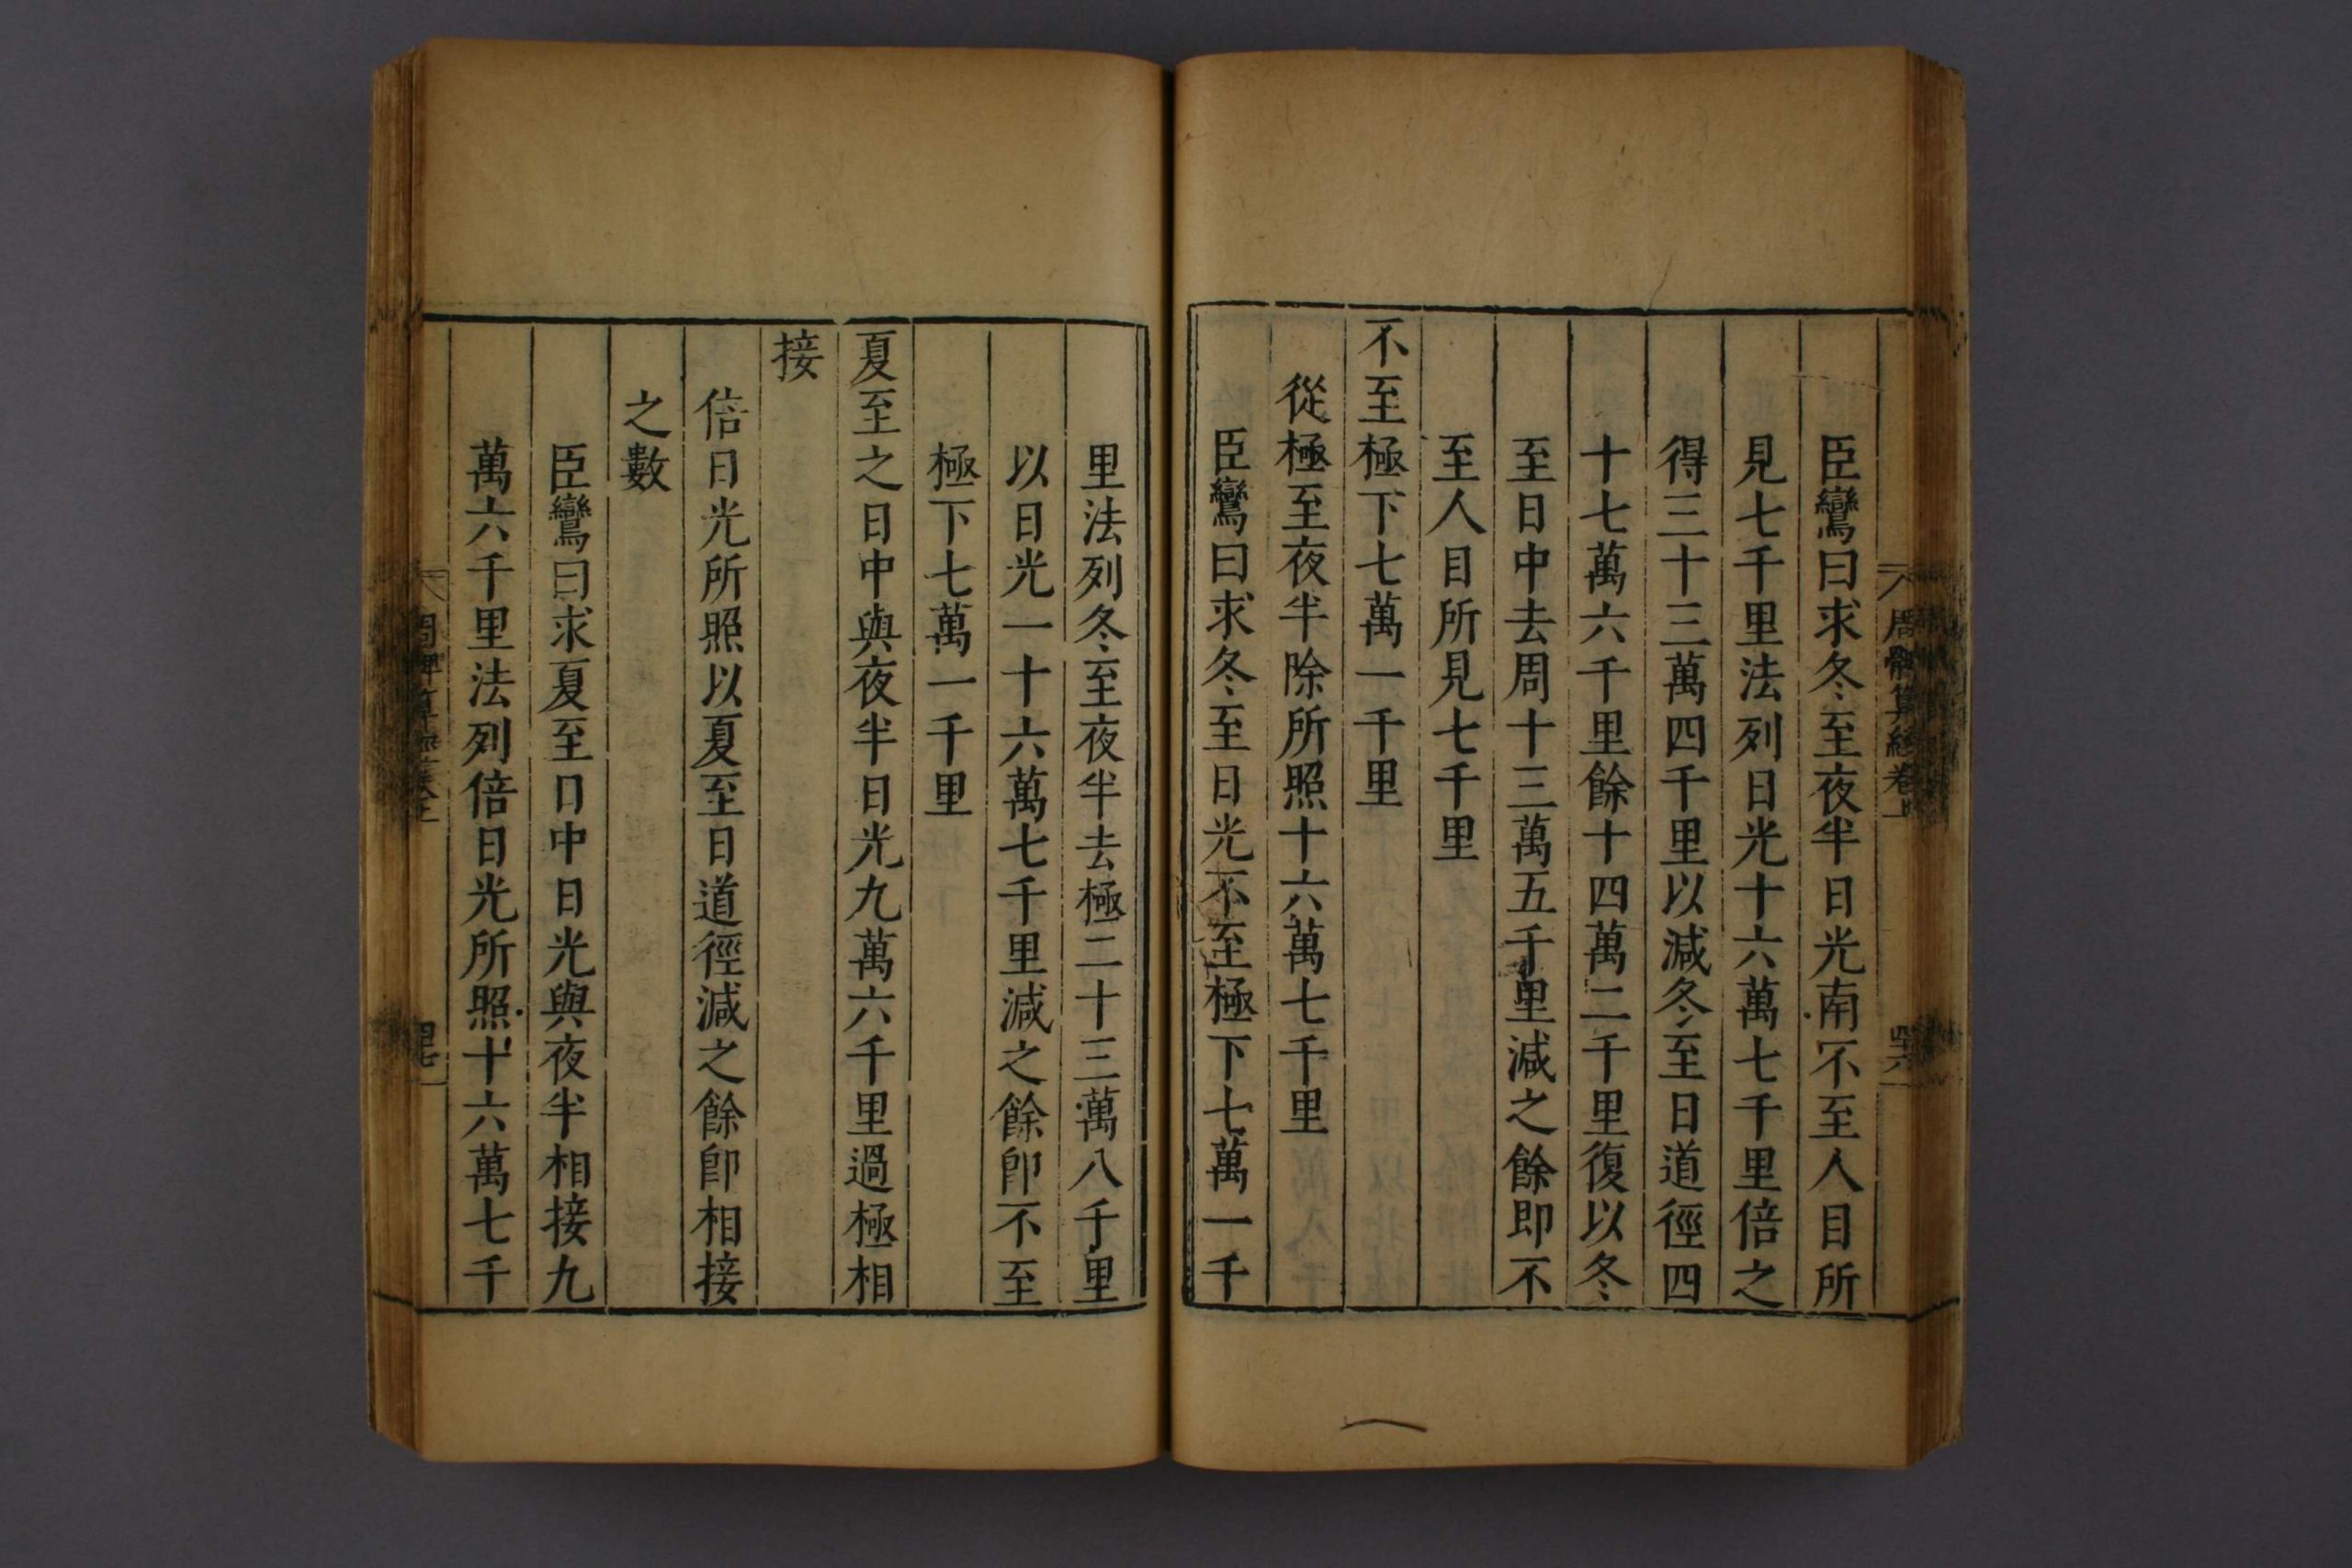 周髀算經卷上
四六
臣鸞曰求冬至夜半日光南不至人目所
見七千里法列日光十六萬七千里倍之
得三十三萬四千里以減冬至日道徑四
十七萬六千里餘十四萬二千里復以冬
至日中去周十三萬五千里減之餘即不
至人目所見七千里
不至極下七萬一千里
從極至夜半除所照十六萬七千里
臣鸞曰求冬至日光不至極下七萬一千
里法列冬至夜半去極二十三萬八千里
以日光一十六萬七千里減之餘卽不至
極下七萬一千里
夏至之日中與夜半日光九萬六千里過極相
接
倍日光所照以夏至日道徑減之餘卽相接
之數
臣鸞曰求夏至日中日光與夜半相接九
萬六千里法列倍日光所照十六萬七千